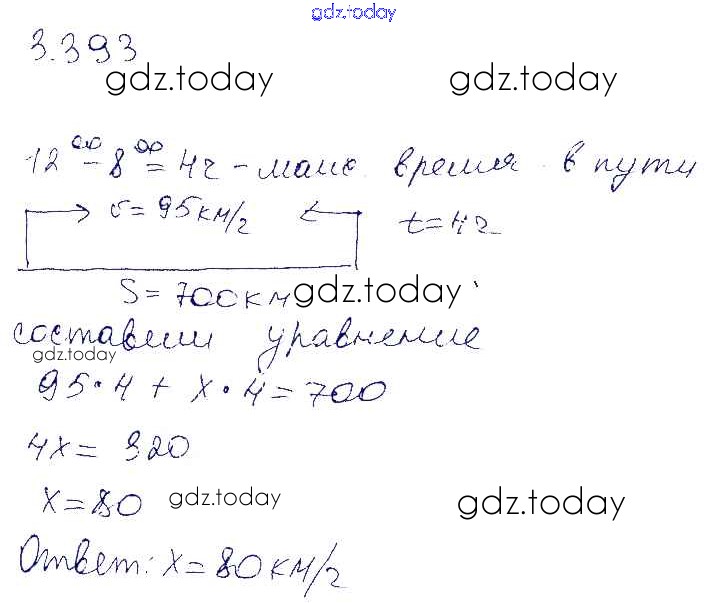 gdz.today
3.393
gdz.today gdz.today
12⁰⁰ - 8⁰⁰ = 4ч - время в пути
υ = 95 км/ч t = 4ч
S = 700 км gdz.today
составим уравнение
gdz.today
95 · 4 + x · 4 = 700
4x = 320
x = 80 gdz.today gdz.today
Ответ: x = 80 км/ч